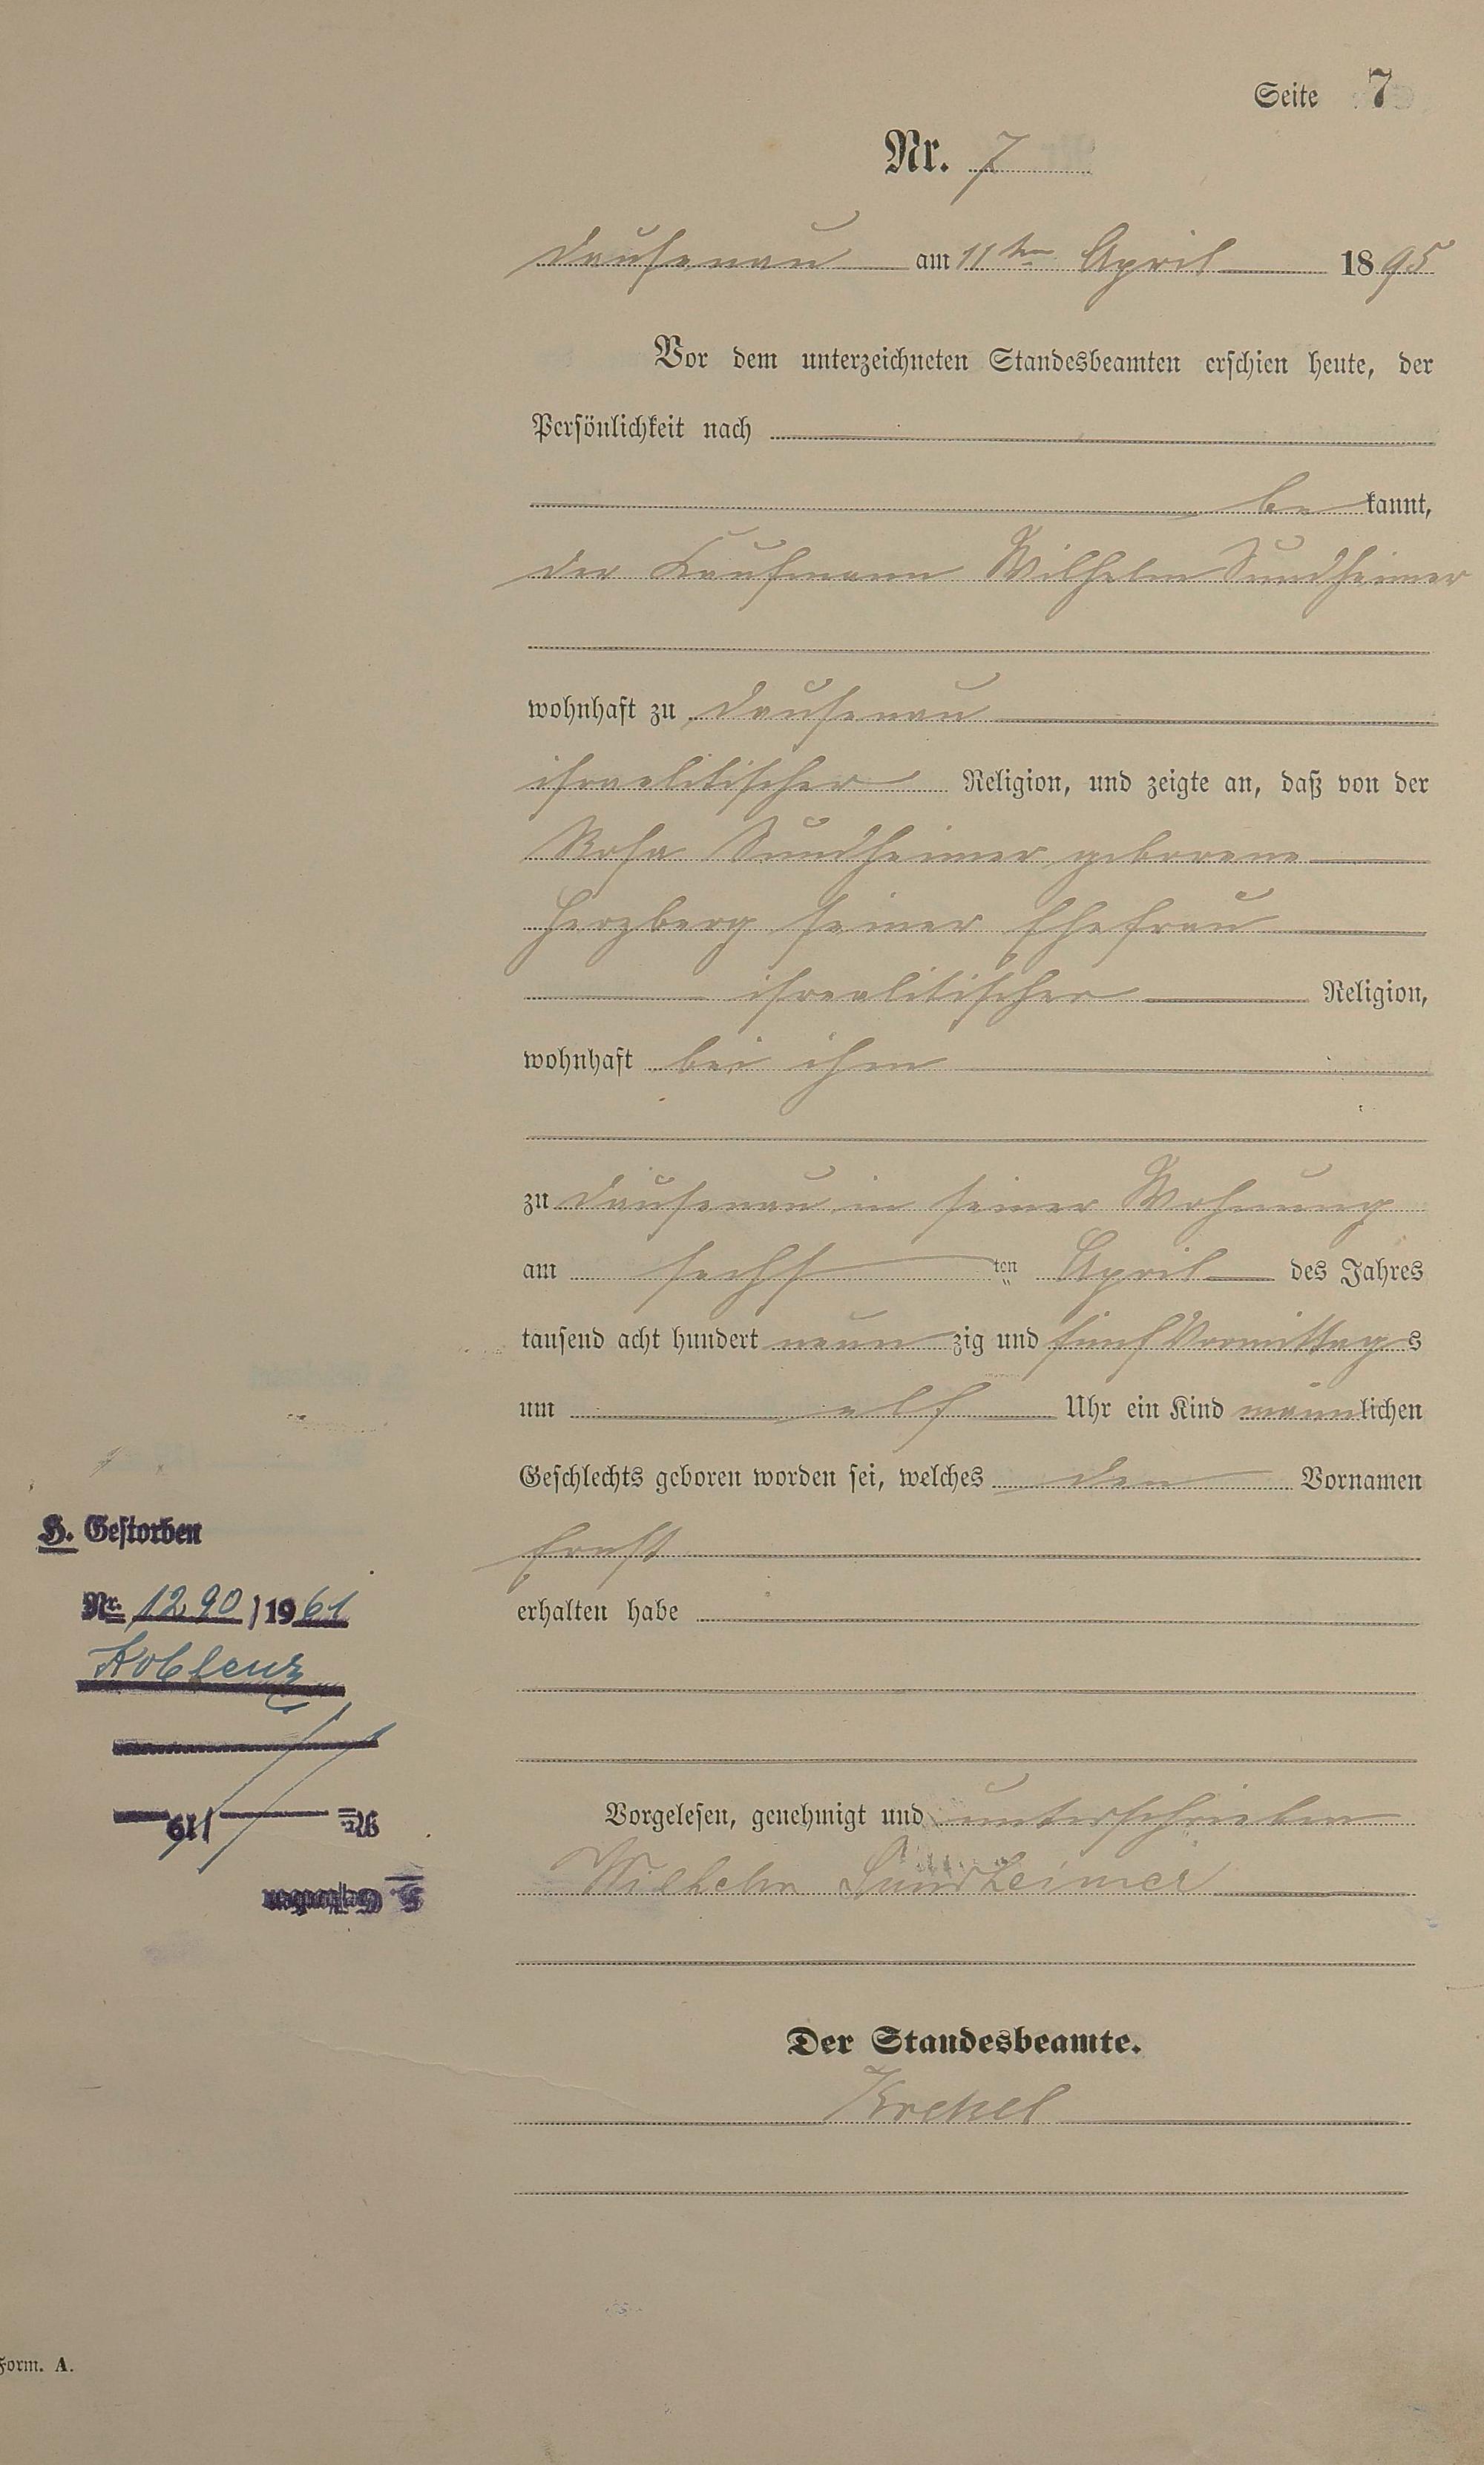 Seite 7
Nr. 7
Dausenau am 11ten April 1895
Vor dem unterzeichneten Standesbeamten erschien heute, der
Persönlichkeit nach
be kannt,
der Kaufmann Wilhelm Sundheimer
wohnhaft zu Dausenau
israelitischer Religion, und zeigte an, daß von der
Rosa Sundheimer geborene
Herzberg seiner Ehefrau
israelitischer Religion,
wohnhaft bei ihm
zu Dausenau in seiner Wohnung
am sechs ten April des Jahres
tausend acht hundert neun zig und fünf Vormittags
um elf Uhr ein Kind männlichen
Geschlechts geboren worden sei, welches den Vornamen
Ernst
erhalten habe
Vorgelesen, genehmigt und unterschrieben
Wilhelm Sundheimer
Der Standesbeamte.
Krekel
H. Gestorben
Nr. 1290/1961
Koblenz
Nr. /19
Gestorben
Form. A.